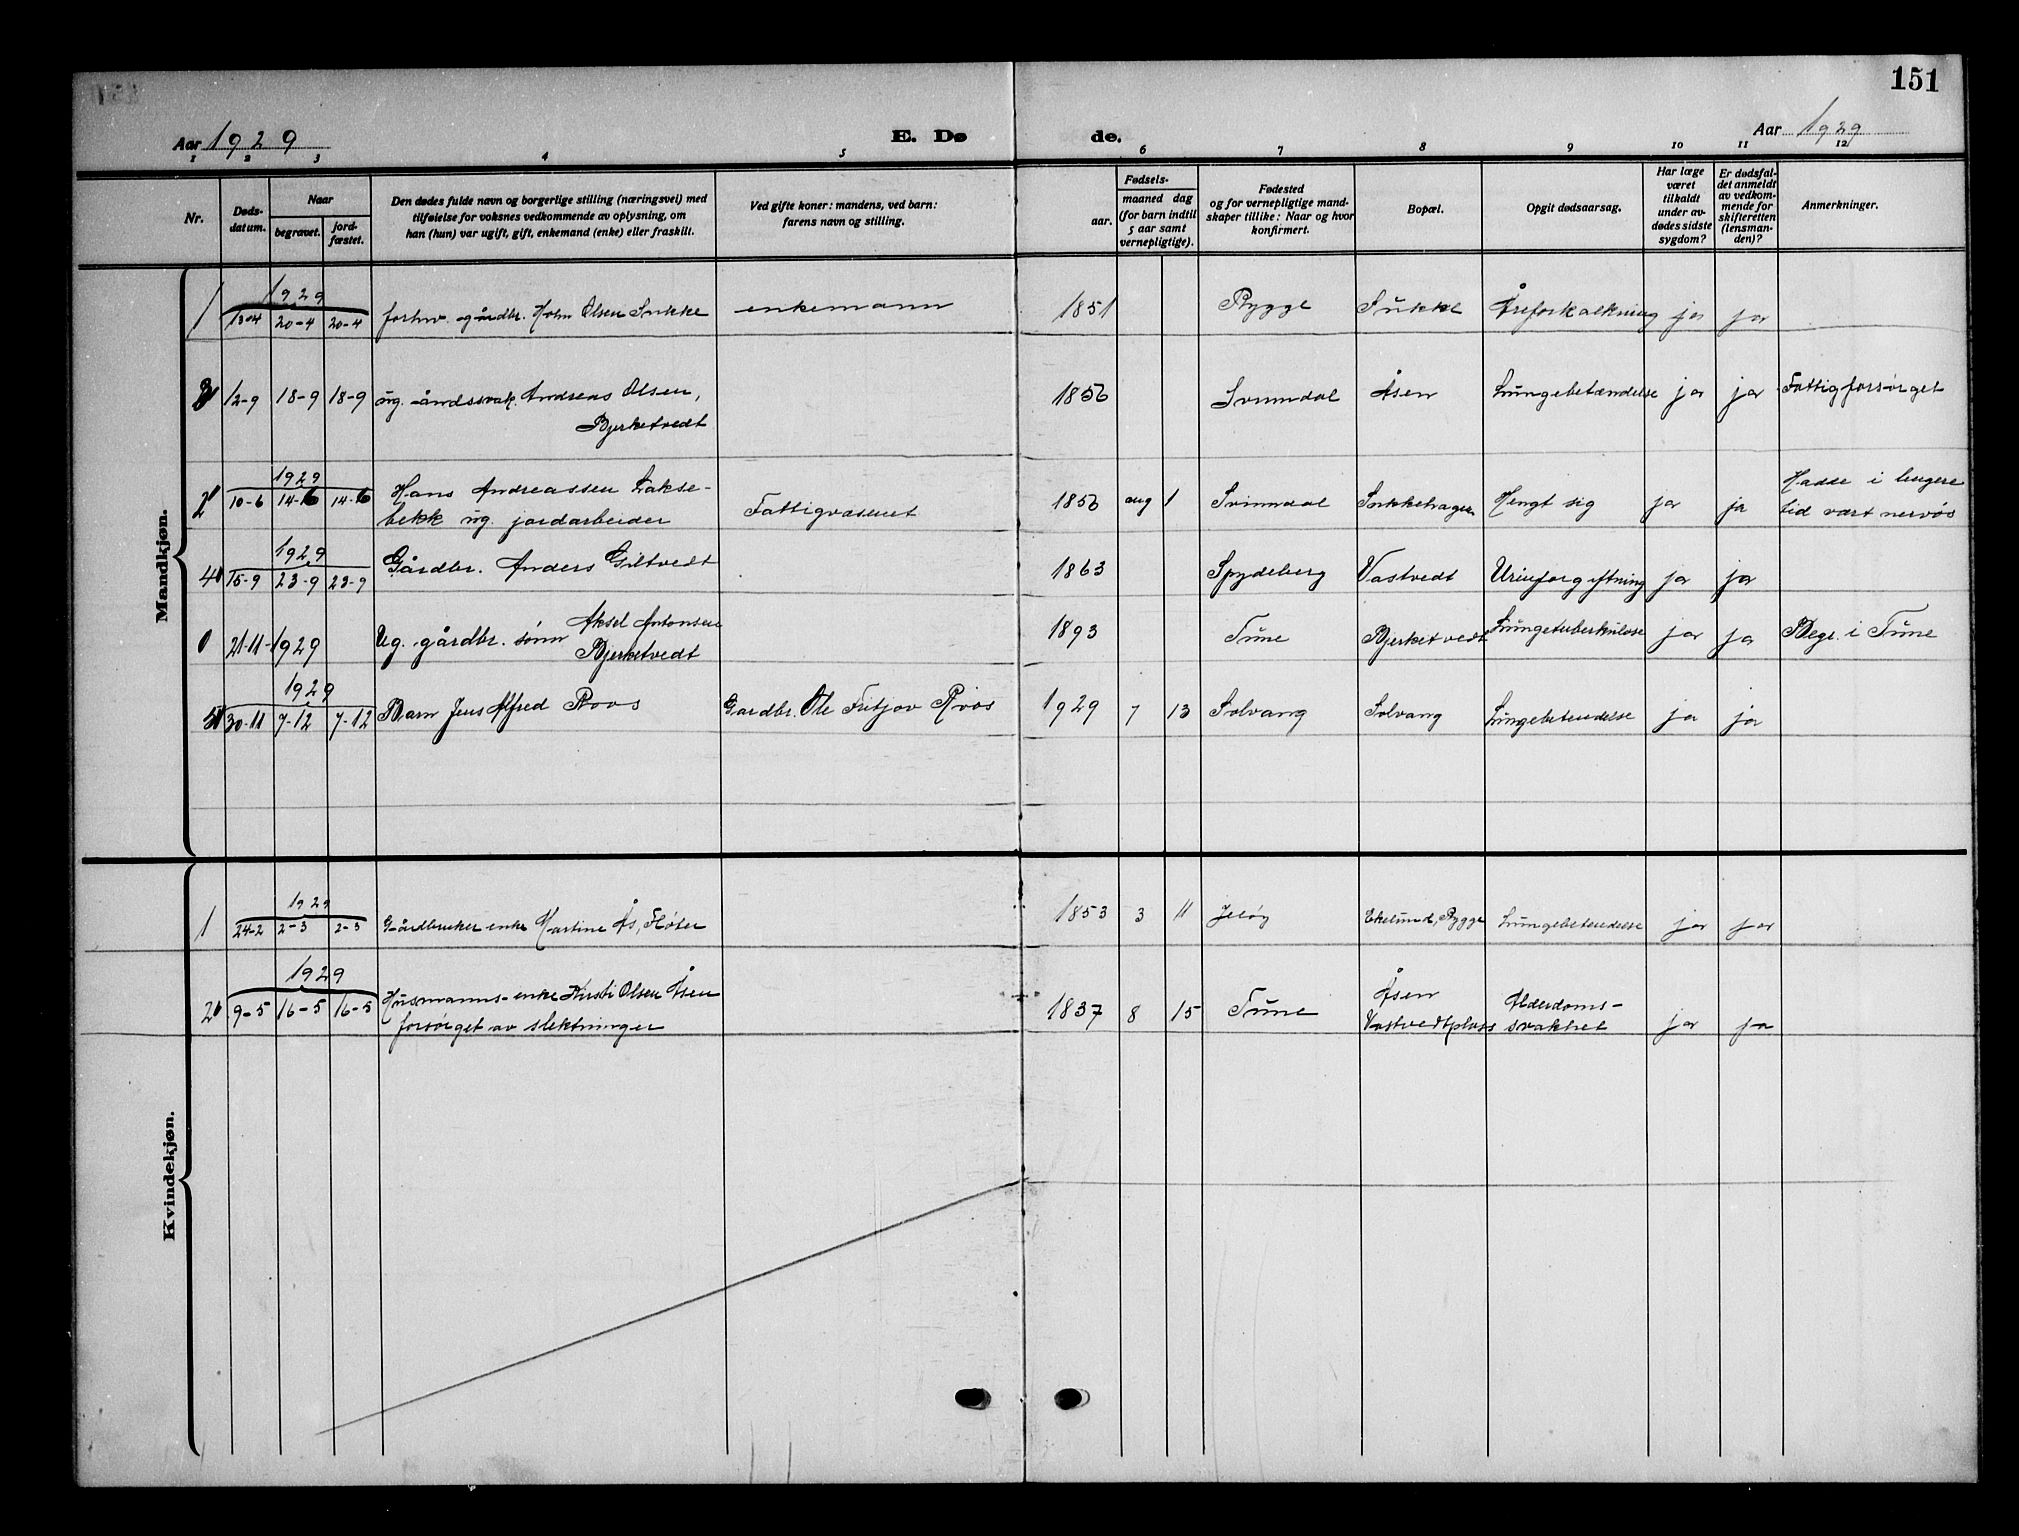 151
Aar 1929
E. Døde.
Aar 1929
1 2 3 4 5 6 7 8 9 10 11 12
Nr.
Døds-
datum.
Naar
begravet.
jord-
fæstet.
Den dødes fulde navn og borgerlige stilling (næringsvei) med
tilføielse for voksnes vedkommende av oplysning, om
han (hun) var ugift, gift, enkemand (enke) eller fraskilt.
Ved gifte koner: mandens, ved barn:
farens navn og stilling.
Fødsels-
aar.
maaned dag
(for barn indtil
5 aar samt
vernepligtige).
Fødested
og for vernepligtige mand-
skaper tillike: Naar og hvor
konfirmert.
Bopæl.
Opgit dødsaarsag.
Har læge
været
tilkaldt
under av-
dødes sidste
sygdom?
Er dødsfal-
det anmeldt
av vedkom-
mende for
skifteretten
(lensman-
den)?
Anmerkninger.
Mandkjøn.
1929
1 13-4 20-4 20-4 forhv. gårdbr. Olsen Sukke enkemann 1851 Rygge Sukke Åreforkalkning ja ja
3 12-9 18-9 18-9 ug. åndssvak. Andreas Olsen, 1856 Svinndal Åsen Lungebetændelse ja ja Fattigforsørget
Bjerketvedt
1929
2 10-6 14-6 14-6 Hans Andreassen Lakse-
bekk ug. jordarbeider Fattigvæsenet 1856 aug 1 Svinndal Sukkehagen Hengt sig ja ja Hadde i lengere
tid vært nervøs
1929
4 15-9 23-9 23-9 Gårdbr. Anders Giltvedt 1863 Spydeberg Vastvedt Urinforgiftning ja ja
0 21-11-1929 Ug. gårdbr. sønn Aksel Antonsen
Bjerketvedt 1893 Tune Bjerketvedt Lungetuberkulose ja ja Begr. i Tune
1929
5 30-11 7-12 7-12 Barn Jens Alfred Roos Gardbr. Ole Fritjov Roos 1929 7 13 Solvang Solvang Lungebetendelse ja ja
Kvindekjøn.
1929
1 24-2 2-3 2-3 Gårdbruker enke Martine Ås, Fløter 1853 3 11 Jeløy Ekelund, Rygge Lungebetendelse ja ja
1929
2 9-5 16-5 16-5 Husmanns-enke Kirsti Olsen Åsen
forsørget av slektninger 1837 8 15 Tune Åsen
Vastvedtplass Alderdoms-
svakhet ja ja